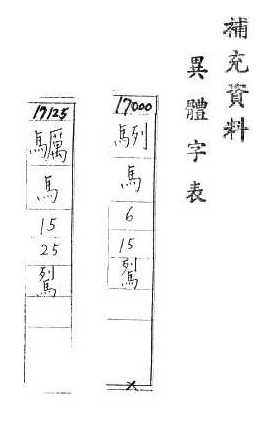 補充資料
異體字表
17000
馬
6
15
X
17125
馬
15
25